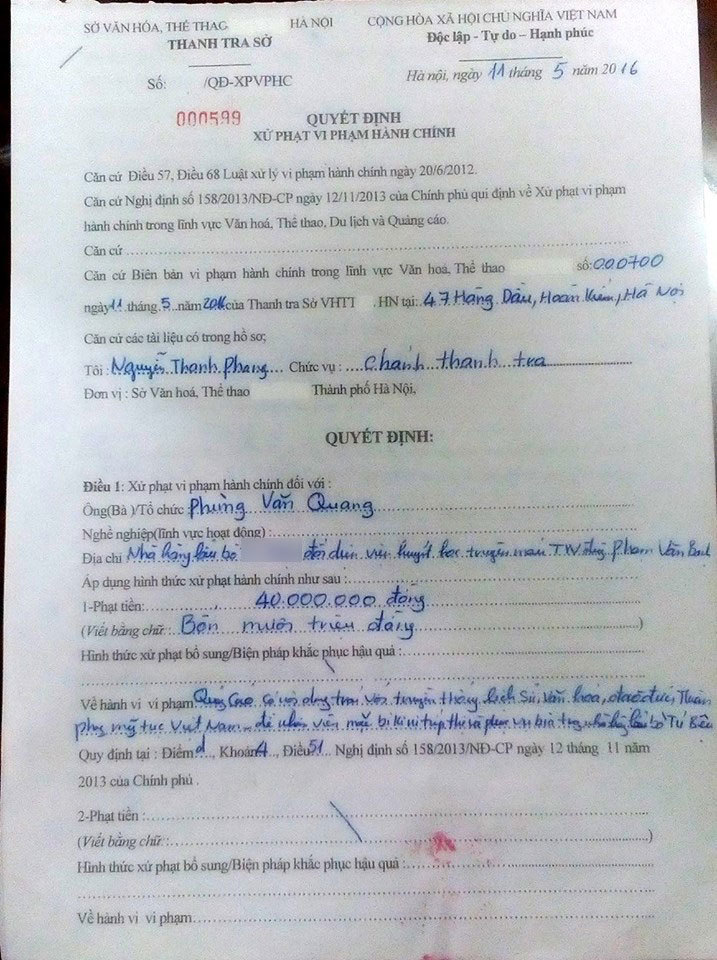 SỞ VĂN HÓA, THỂ THAO HÀ NỘI
CỘNG HÒA XÃ HỘI CHỦ NGHĨA VIỆT NAM
THANH TRA SỞ
Độc lập - Tự do – Hạnh phúc
Số: /QĐ-XPVPHC
Hà nội, ngày 11 tháng 5 năm 2016
000599
QUYẾT ĐỊNH
XỬ PHẠT VI PHẠM HÀNH CHÍNH
Căn cứ Điều 57, Điều 68 Luật xử lý vi phạm hành chính ngày 20/6/2012.
Căn cứ Nghị định số 158/2013/NĐ-CP ngày 12/11/2013 của Chính phủ qui định về Xử phạt vi phạm
hành chinh trong lĩnh vực Văn hoá, Thể thao, Du lịch và Quảng cáo.
Căn cứ
Căn cứ Biên bản vi phạm hành chính trong lĩnh vực Văn hoá, Thể thao số: 000700
ngày 11 tháng 5 năm 2016 của Thanh tra Sở VHTT , HN tại: 47 Hàng Dầu, Hoàn Kiếm, Hà Nội
Căn cứ các tài liệu có trong hồ sơ;
Tôi : Nguyễn Thanh Phang Chức vụ : Chánh thanh tra
Đơn vị : Sở Văn hoá, Thể thao Thành phố Hà Nội,
QUYẾT ĐỊNH:
Điều 1: Xử phạt vi phạm hành chính đối với :
Ông(Bà )/Tổ chức Phùng Văn Quang
Nghề nghiệp(lĩnh vực hoạt động) :
Địa chỉ Nhà hàng lẩu bò đối diện viện huyết học truyền máu TW đường Phạm Văn Bạch
Áp dụng hình thức xử phạt hành chính như sau :
1-Phạt tiền: 40.000.000 đồng
(Viết bằng chữ: Bốn mươi triệu đồng)
Hình thức xử phạt bổ sung/Biện pháp khắc phục hậu quả :
Về hành vi vi phạm Quảng Cáo có nội dung trái với truyền thống lịch Sử, Văn hoá, đạo đức, Thuần
phong mỹ tục Việt Nam, để nhân viên mặc bikini phục vụ bia tại nhà hàng lẩu bò Tứ Bều
Quy định tại : Điểm d, Khoản 4, Điều 51 Nghị định số 158/2013/NĐ-CP ngày 12 tháng 11 năm
2013 của Chính phủ .
2-Phạt tiền :
(Viết bằng chữ : )
Hình thức xử phạt bổ sung/Biện pháp khắc phục hậu quả :
Về hành vi vi phạm